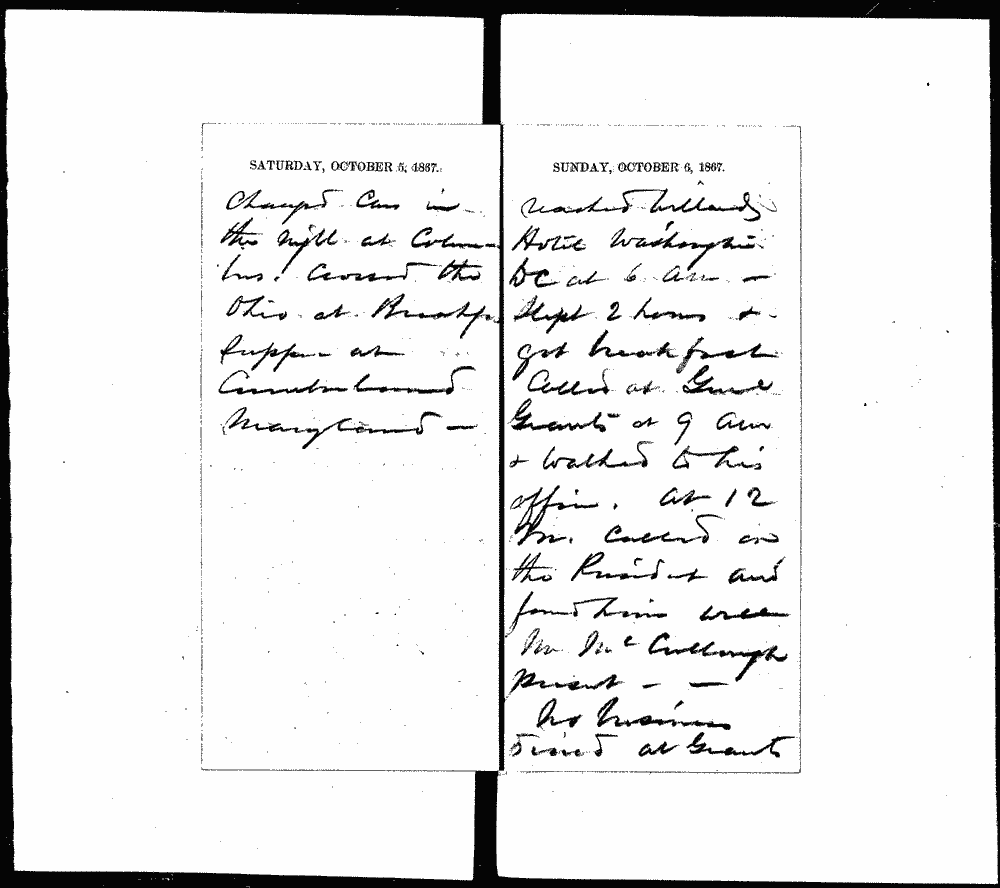 SATURDAY, OCTOBER 5, 1867.
Changed Cars in
the night at Colum-
bus. Crossed the
Ohio at
Supper at
Cumberland
Maryland —
SUNDAY, OCTOBER 6, 1867.
reached Willards
Hotel Washington
DC at 6 am —
Slept 2 hours &
got breakfast
Called at Genl
Grants at 9 am
& walked to his
office. at 12
m. Called on
the President and
found him well
Mr McCullough
present — —
No business
Dined at Grants